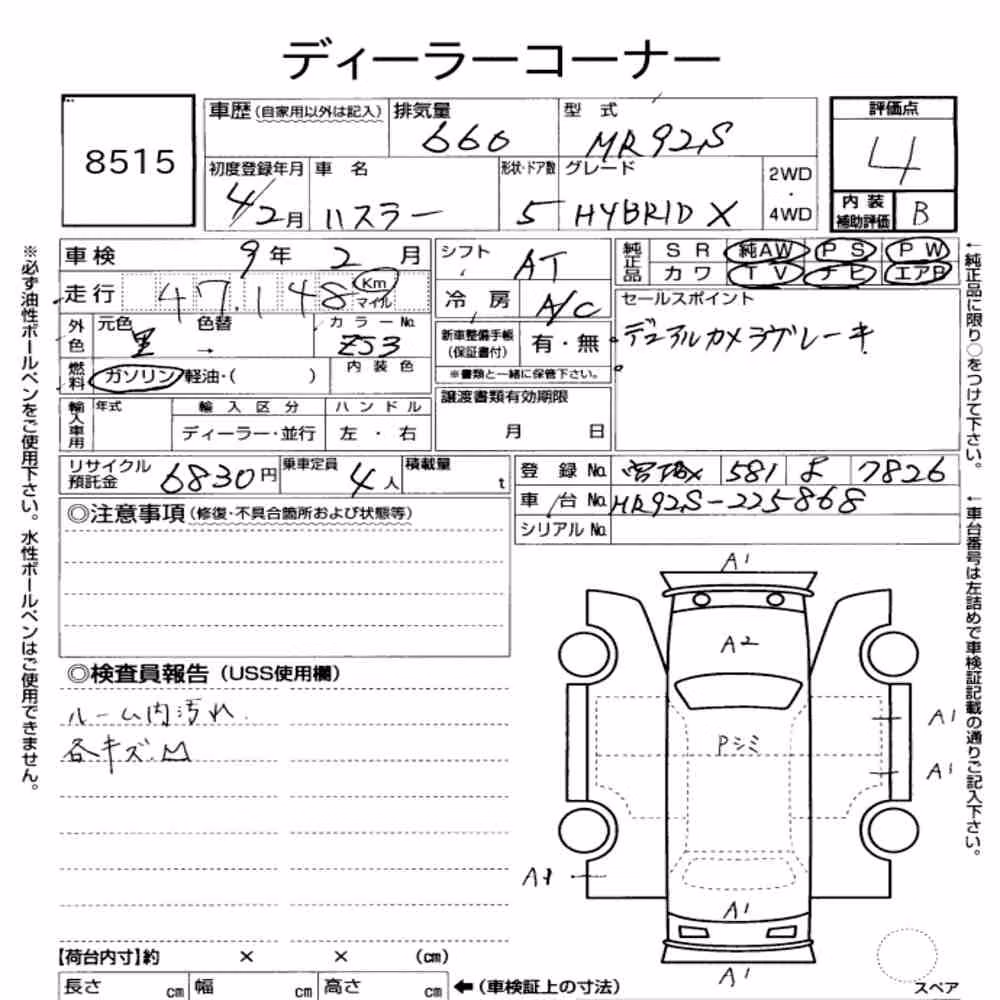 ディーラーコーナー
8515
車歴(自家用以外は記入) 排気量 660 型式 MR92S
評価点 4
内装補助評価 B
初度登録年月 4/2月 車名 ハスラー 形状・ドア数 5 グレード HYBRID X 2WD・4WD
車検 9年 2月
シフト AT
純正品 SR 純AW PS PW
カワ TV ナビ エアB
走行 47,148 Km マイル
冷房 A/C
セールスポイント
デュアルカメラブレーキ
外色 元色 黒 → 色替 カラーNo. ZJ3
新車整備手帳(保証書付) 有・無
※書類と一緒に保管下さい。
燃料 ガソリン 軽油・( ) 内装色
譲渡書類有効期限
月 日
輸入車用 年式 輸入区分 ハンドル
ディーラー・並行 左・右
リサイクル預託金 6830円 乗車定員 4人 積載量 t
登録No. 581 7826
車台No. MR92S-225868
シリアルNo.
◎注意事項(修復・不具合箇所および状態等)
◎検査員報告(USS使用欄)
ルーム内汚れ.
各キズ.凹
A1
A2
Pシミ
A1
A1
A1
A1
A1
スペア
【荷台内寸】約 × × (cm)
長さ cm 幅 cm 高さ cm ←(車検証上の寸法)
※必ず油性ボールペンをご使用下さい。水性ボールペンはご使用できません。
←純正品に限り○をつけて下さい。
←車台番号は左詰めで車検証記載の通りご記入下さい。